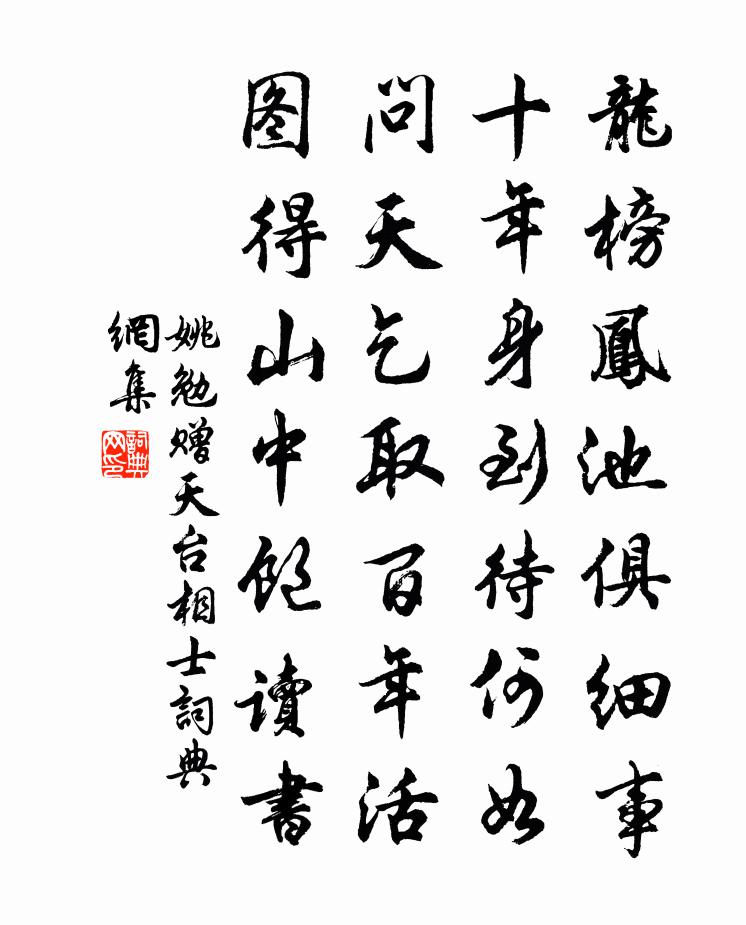 龍榜鳳池俱細事
十年身到待何如
問天乞取百年活
图得山中飽讀書
姚勉贈天台相士詞典
網集
詞典網印